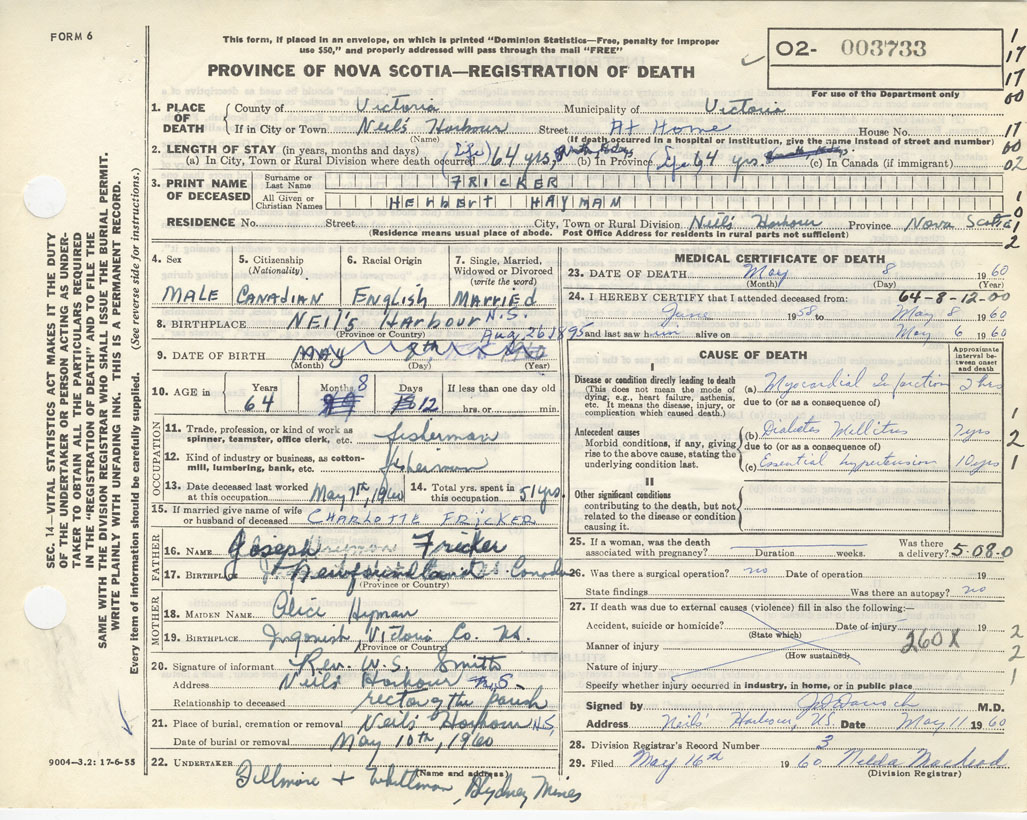 FORM 6
This form, if placed in an envelope, on which is printed "Dominion Statistics—Free, penalty for improper
use $50," and properly addressed will pass through the mail "FREE"
O2- 003733
PROVINCE OF NOVA SCOTIA—REGISTRATION OF DEATH
For use of the Department only
1. PLACE OF DEATH County of Victoria Municipality of Victoria
If in City or Town Neil's Harbour Street At Home House No.
(Name) (If death occurred in a hospital or institution, give the name instead of street and number)
2. LENGTH OF STAY (in years, months and days)
(a) In City, Town or Rural Division where death occurred (life) 64 yrs, (b) In Province life 64 yrs. (c) In Canada (if immigrant)
3. PRINT NAME OF DECEASED Surname or Last Name FRICKER
All Given or Christian Names HERBERT HAYMAN
RESIDENCE No. Street City, Town or Rural Division Neil's Harbour Province Nova Scotia
(Residence means usual place of abode. Post Office Address for residents in rural parts not sufficient)
4. Sex MALE
5. Citizenship (Nationality) CANADIAN
6. Racial Origin ENGLISH
7. Single, Married, Widowed or Divorced (write the word) MARRIED
8. BIRTHPLACE NEIL'S HARBOUR N.S.
(Province or Country)
Aug 26 1895
9. DATE OF BIRTH MAY 8th
(Month) (Day) (Year)
10. AGE in Years 64 Months 8 Days 12 If less than one day old hrs. or min.
OCCUPATION
11. Trade, profession or kind of work as spinner, teamster, office clerk, etc. fisherman
12. Kind of industry or business, as cotton-mill, lumbering, bank, etc. fisherman
13. Date deceased last worked at this occupation May 7th, 1960
14. Total yrs. spent in this occupation 51 yrs.
15. If married give name of wife or husband of deceased CHARLOTTE FRICKER
FATHER
16. NAME Joseph Fricker
17. BIRTHPLACE Newfoundland Canada
(Province or Country)
MOTHER
18. MAIDEN NAME Alice Hyman
19. BIRTHPLACE Ingonish, Victoria Co. N.S.
(Province or Country)
20. Signature of informant Rev. W. S. Smith
Address Neil's Harbour N.S.
Relationship to deceased rector of the parish
21. Place of burial, cremation or removal Neil's Harbour N.S.
Date of burial or removal May 10th, 1960
22. UNDERTAKER Fillmore + Whitman, Sydney Mines
(Name and address)
MEDICAL CERTIFICATE OF DEATH
23. DATE OF DEATH May 8 1960
(Month) (Day) (Year)
24. I HEREBY CERTIFY that I attended deceased from: 64-8-12-00
June 1958 to May 8 1960
and last saw him alive on May 6 1960
CAUSE OF DEATH
Approximate interval between onset and death
I
Disease or condition directly leading to death
(This does not mean the mode of dying, e.g., heart failure, asthenia, etc. It means the disease, injury, or complication which caused death.)
(a) Myocardial Infarction 2 hrs
due to (or as a consequence of)
Antecedent causes
Morbid conditions, if any, giving rise to the above cause, stating the underlying condition last.
(b) Diabetes Mellitus 7 yrs
due to (or as a consequence of)
(c) Essential hypertension 10 yrs
II
Other significant conditions contributing to the death, but not related to the disease or condition causing it.
25. If a woman, was the death associated with pregnancy? Duration weeks. Was there a delivery? 5-08-0
26. Was there a surgical operation? no Date of operation 19
State findings Was there an autopsy? no
27. If death was due to external causes (violence) fill in also the following:—
Accident, suicide or homicide? Date of injury 19
(State which)
Manner of injury 260X
(How sustained)
Nature of injury
Specify whether injury occurred in industry, in home, or in public place
Signed by M.D.
Address Neil's Harbour, N.S. Date May 11 1960
28. Division Registrar's Record Number 3
29. Filed May 16th 1960 Nelda MacLeod
(Division Registrar)
SEC. 14—VITAL STATISTICS ACT MAKES IT THE DUTY
OF THE UNDERTAKER OR PERSON ACTING AS UNDER-
TAKER TO OBTAIN ALL THE PARTICULARS REQUIRED
IN THE "REGISTRATION OF DEATH" AND TO FILE THE
SAME WITH THE DIVISION REGISTRAR WHO SHALL ISSUE THE BURIAL PERMIT.
WRITE PLAINLY WITH UNFADING INK. THIS IS A PERMANENT RECORD.
Every item of information should be carefully supplied. (See reverse side for instructions.)
9004—3.2: 17-6-55
1
17
17
00
17
60
02
1
0
1
2
1
2
1
2
2
1